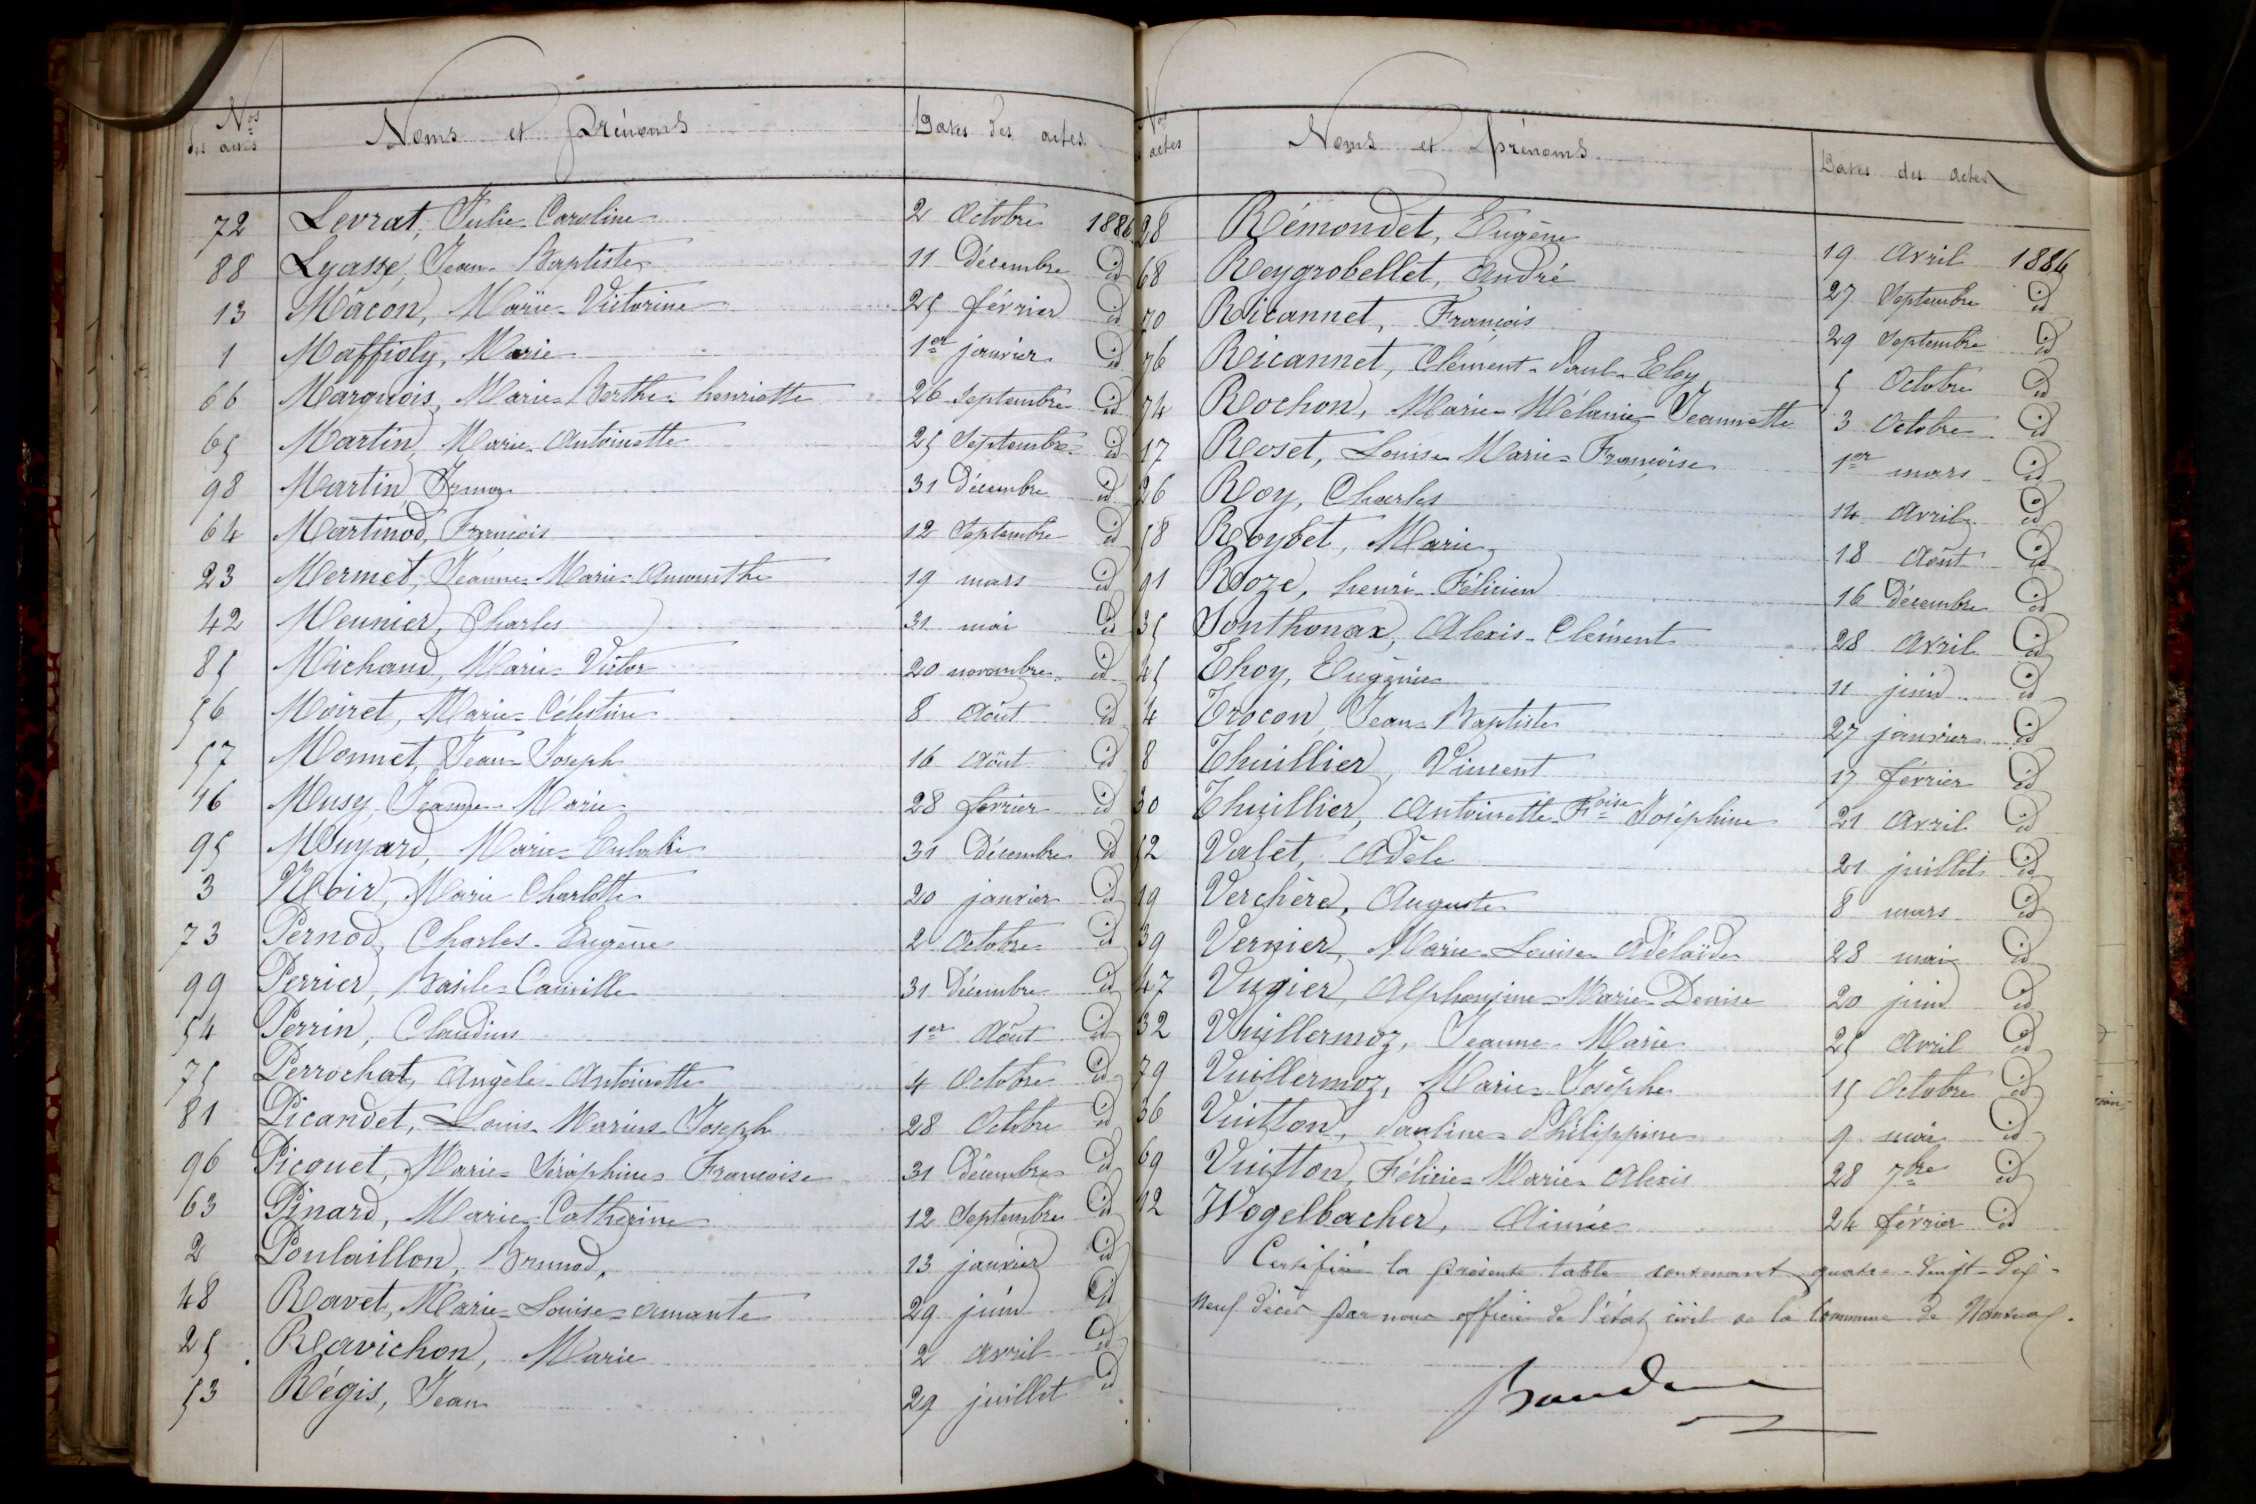 Nos des actes Noms et Prénoms Dates des actes
72 Levrat, Julie Caroline 2 Octobre 1886
88 Lyasse, Jean-Baptiste 11 Décembre id
13 Mâcon, Marie-Victorine 25 février id
1 Maffioly, Marie 1er janvier id
66 Marquois, Marie-Berthe-henriette 26 Septembre id
65 Martin, Marie-Antoinette 25 Septembre id
98 Martin, Irma 31 Décembre id
64 Martinod, François 12 Septembre id
23 Mermet, Jeanne-Marie-Amaranthe 19 mars id
42 Meunier, Charles 31 mai id
85 Michaud, Marie-Victor 20 novembre id
56 Moiret, Marie-Célestine 8 Août id
57 Monnet, Jean-Joseph 16 Août id
16 Musy, Jeanne-Marie 28 février id
95 Muyard, Marie-Eulalie 31 Décembre id
3 Noir, Marie Charlotte 20 janvier id
73 Pernod, Charles-Eugène 2 Octobre id
99 Perrier, Basile-Camille 31 Décembre id
54 Perrin, Claudius 1er Août id
75 Perrochat, Angèle-Antoinette 4 Octobre id
81 Picandet, Louis-Marius-Joseph 28 Octobre id
96 Picquet, Marie-Séraphine-Françoise 31 Décembre id
63 Pinard, Marie-Catherine 12 Septembre id
2 Poulaillon, Brunod, 13 janvier id
48 Ravet, Marie-Louise-amante 29 juin id
25 Ravichon, Marie 2 Avril id
53 Régis, Jean 29 juillet id
Nos actes Noms et Prénoms Dates des actes
28 Rémondet, Eugène 19 Avril 1886
68 Reygrobellet, André 27 Septembre id
70 Ricannet, François 29 Septembre id
76 Ricannet, Clément-Paul-Eloy, 5 Octobre id
74 Rochon, Marie-Mélanie-Jeannette 3 Octobre id
17 Roset, Louise-Marie-Françoise 1er mars id
26 Roy, Charles 14 Avril id
58 Roybet, Marie 18 Août id
91 Roze, henri-Félicien 16 Décembre id
35 Sonthonax, Alexis-Clément 28 Avril id
45 Thoy, Eugénie 11 juin id
4 Trocon, Jean-Baptiste 27 janvier id
8 Thuillier, Vincent 17 février id
30 Thuillier, Antoinette-Foise Joséphine 21 Avril id
52 Valet, Adèle 21 juillet id
19 Verchère, Auguste 8 mars id
39 Vernier, Marie-Louise-Adélaïde 28 mai id
47 Vugier, Alphonsine-Marie-Denise 20 juin id
32 Vuillermoz, Jeanne-Marie 25 Avril id
79 Vuillermoz, Marie-Josèphe 15 Octobre id
36 Vuitton, Pauline-Philippine 9 mai id
69 Vuitton, Félicie-Marie-Alexis 28 7bre id
12 Wogelbacher, Aimée 24 février id
Certifiée la présente table contenant quatre-vingt-dix-
neuf décès par nous officier de l'état civil de la Commune de